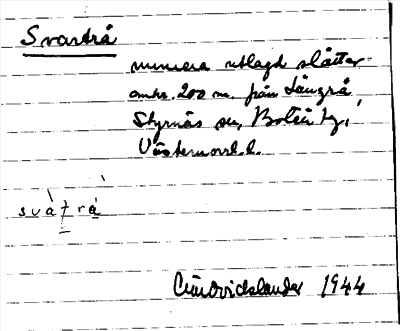 Svartrå
numera utlagd slåtter
omkr. 200 m. från Långrå,
Styrnäs sn, Boteå tg,
Västernorrl. l.
svàt rá
1944